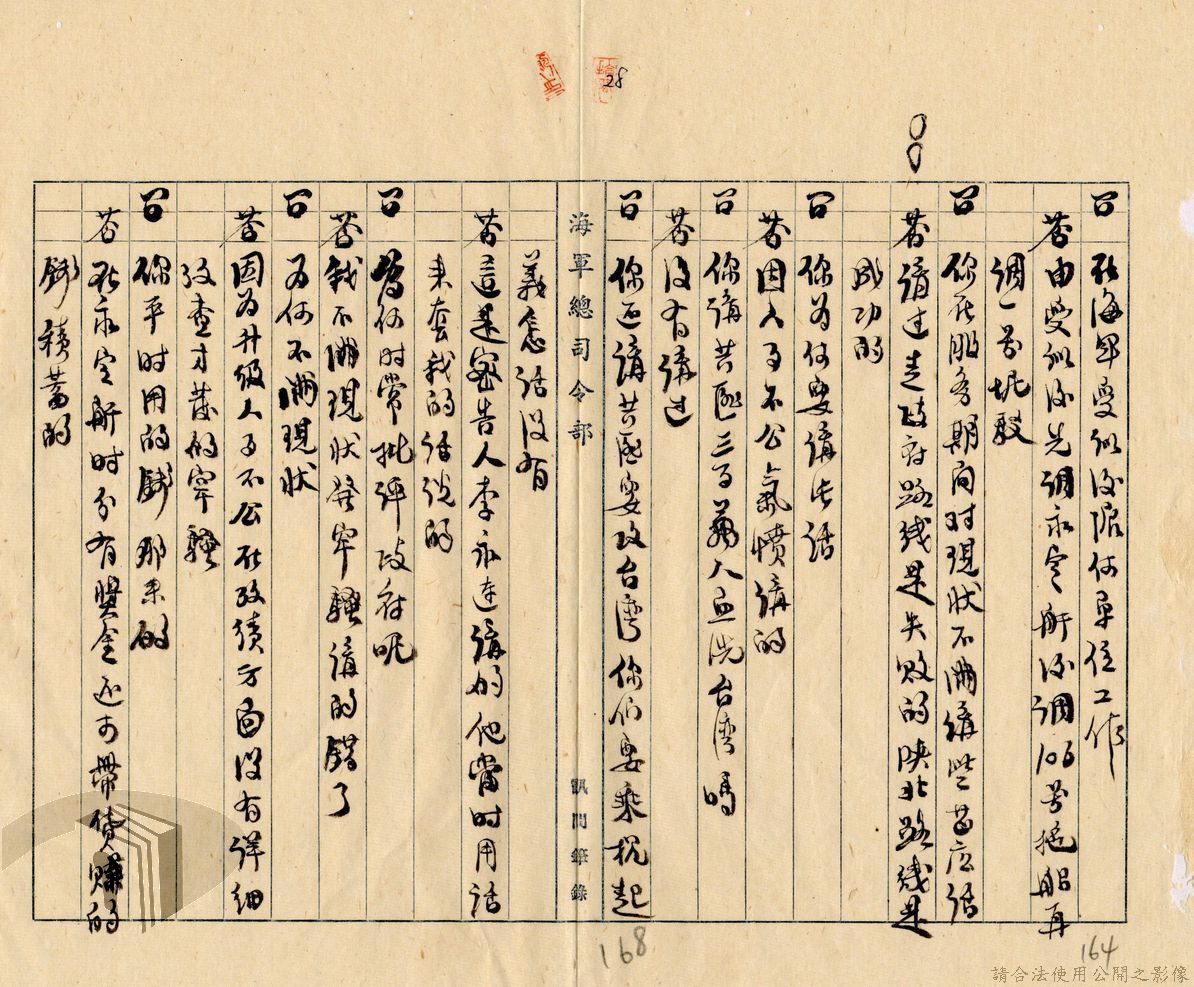 28
問 在海軍受訓後派何單位工作
答 由受訓後先調永定艦後調106号拖船再
調一号坭駁
問 你在服务期间对現狀不滿講些甚么話
答 講过走政府路线是失敗的陕北路线是
成功的
問 你为何要講此話
答 因人事不公氣憤講的
問 你講共匪三百萬人血洗台湾嗎
答 没有講过
問 你还講共匪要攻台湾你们要乘机起
海軍總司令部 訊問筆錄
義怎話没有
答 這是密告人李永達講的他當时用話
來套我的話说的
問 爲何时常批評政府呢
答 我不滿現狀發牢騷講的錯了
問 为何不滿現狀
答 因为升級人事不公在政績方面没有详细
攷查才發的牢騷
問 你平时用的錢那来的
答 在永定艦时分有獎金还有帶货賺的
錢積蓄的
168
164
請合法使用公開之影像